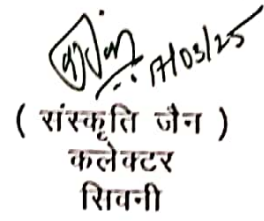 17/03/25
( संस्कृति जैन )
कलेक्टर
सिवनी